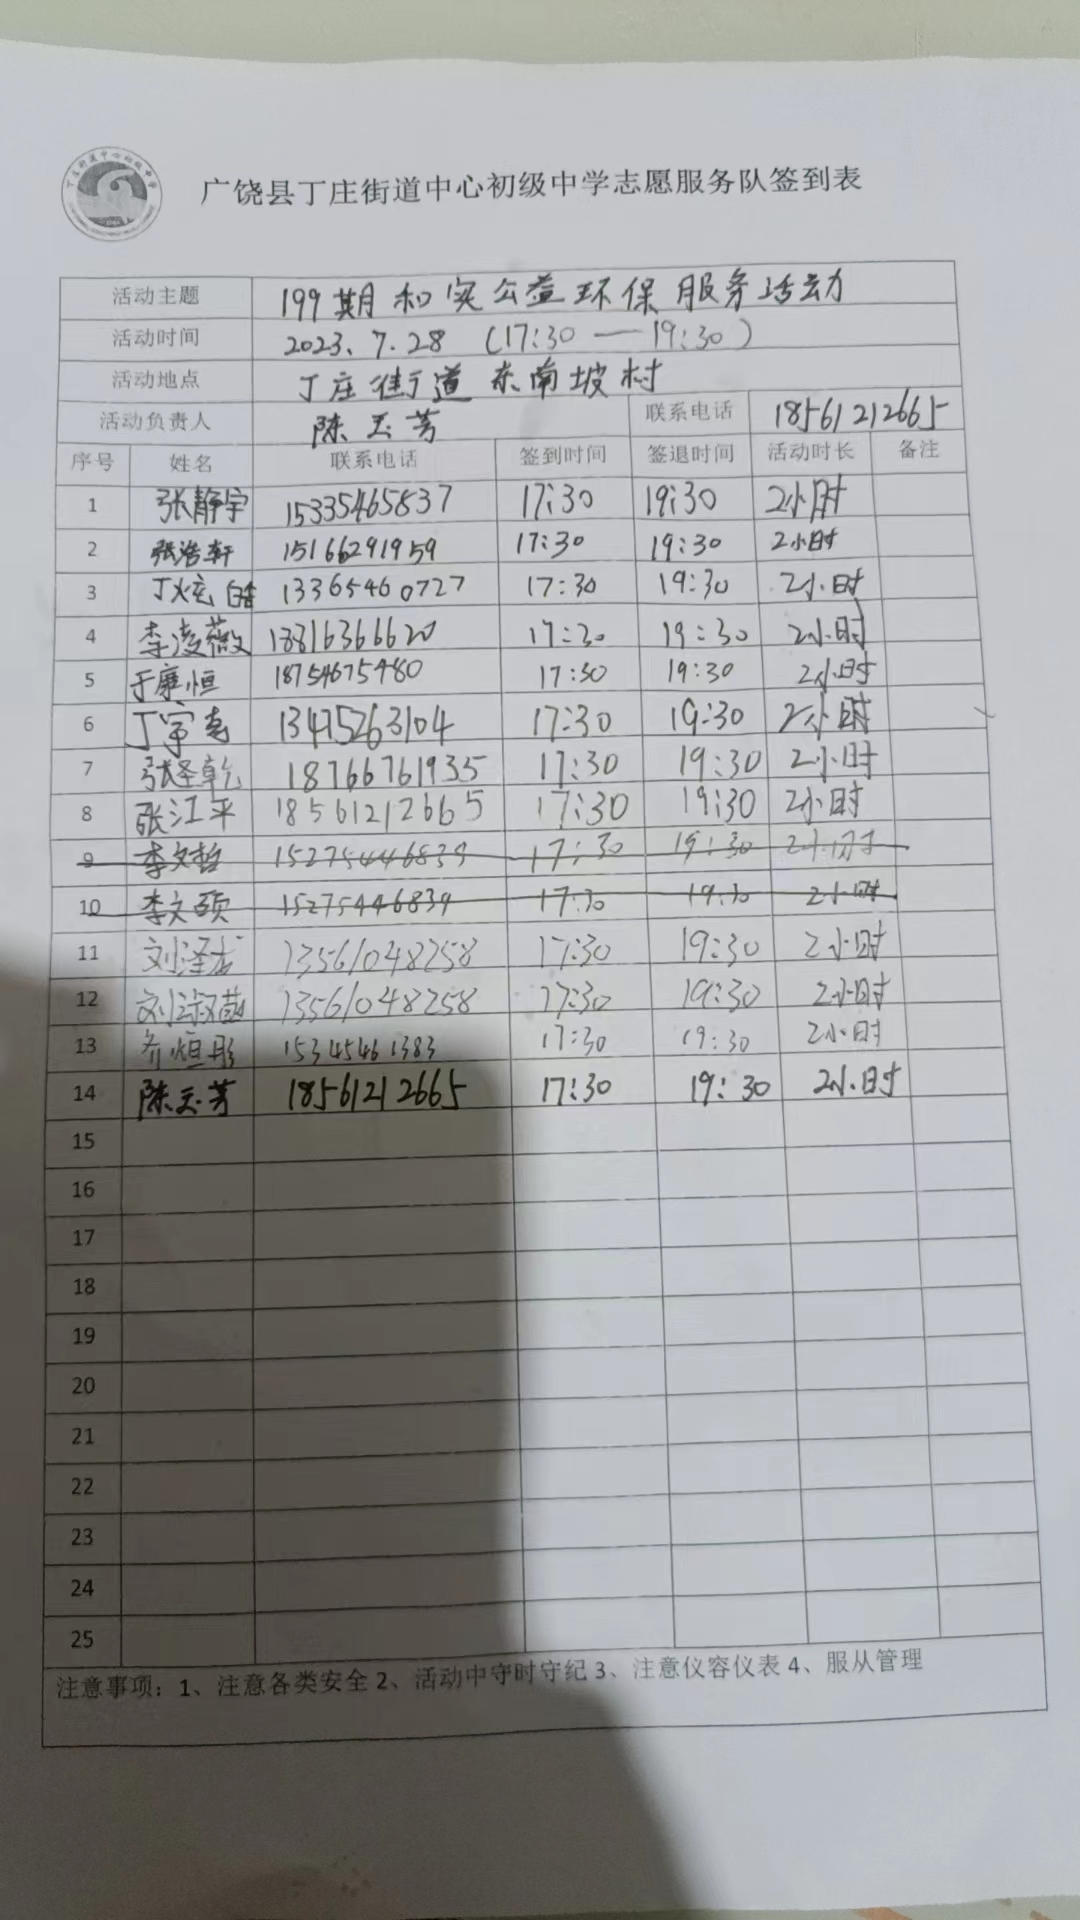 广饶县丁庄街道中心初级中学志愿服务队签到表
活动主题 199期和实公益环保服务活动
活动时间 2023.7.28 (17:30 — 19:30)
活动地点 丁庄街道东南坡村
活动负责人 陈玉芳 联系电话 18561212665
序号 姓名 联系电话 签到时间 签退时间 活动时长 备注
1 张静宇 15335465837 17:30 19:30 2小时
2 张浩轩 15166291959 17:30 19:30 2小时
3 丁炫皓 13365460727 17:30 19:30 2小时
4 李凌薇 18816366620 17:30 19:30 2小时
5 于康恒 18754675480 17:30 19:30 2小时
6 丁宇 13475263104 17:30 19:30 2小时
7 张圣乾 18766761935 17:30 19:30 2小时
8 张江平 18561212665 17:30 19:30 2小时
9 李文哲 15275446839 17:30 19:30 2小时
10 李文硕 15275446839 17:30 19:30 2小时
11 刘泽龙 13561048258 17:30 19:30 2小时
12 刘淑 13561048258 17:30 19:30 2小时
13 齐恒彤 15345461383 17:30 19:30 2小时
14 陈玉芳 18561212665 17:30 19:30 2小时
15
16
17
18
19
20
21
22
23
24
25
注意事项：1、注意各类安全 2、活动中守时守纪 3、注意仪容仪表 4、服从管理